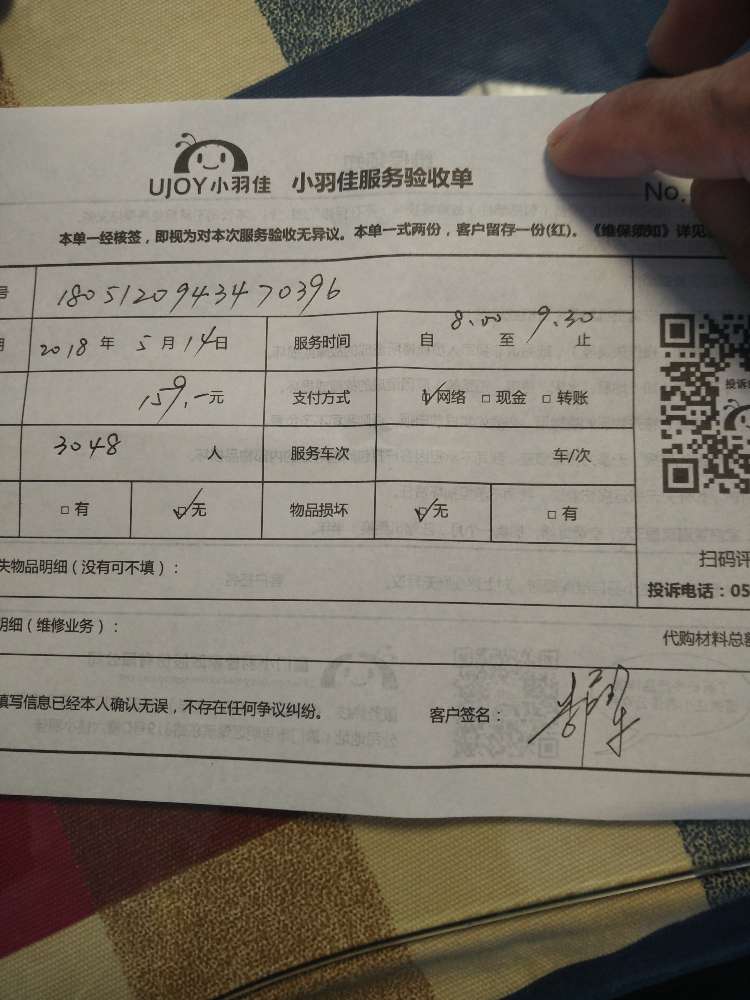 UJOY小羽佳 小羽佳服务验收单
No.
本单一经核签，即视为对本次服务验收无异议。本单一式两份，客户留存一份(红)。《维保须知》详见
号 180512094347 0396
期 2018 年 5 月 14 日 服务时间 自 8:00 至 9:30 止
159.一元 支付方式 ☑网络 □现金 □转账
3048 人 服务车次 车/次
□有 ☑无 物品损坏 ☑无 □有
投诉
失物品明细（没有可不填）：
扫码评
投诉电话：05
明细（维修业务）：
代购材料总额
填写信息已经本人确认无误，不存在任何争议纠纷。 客户签名：